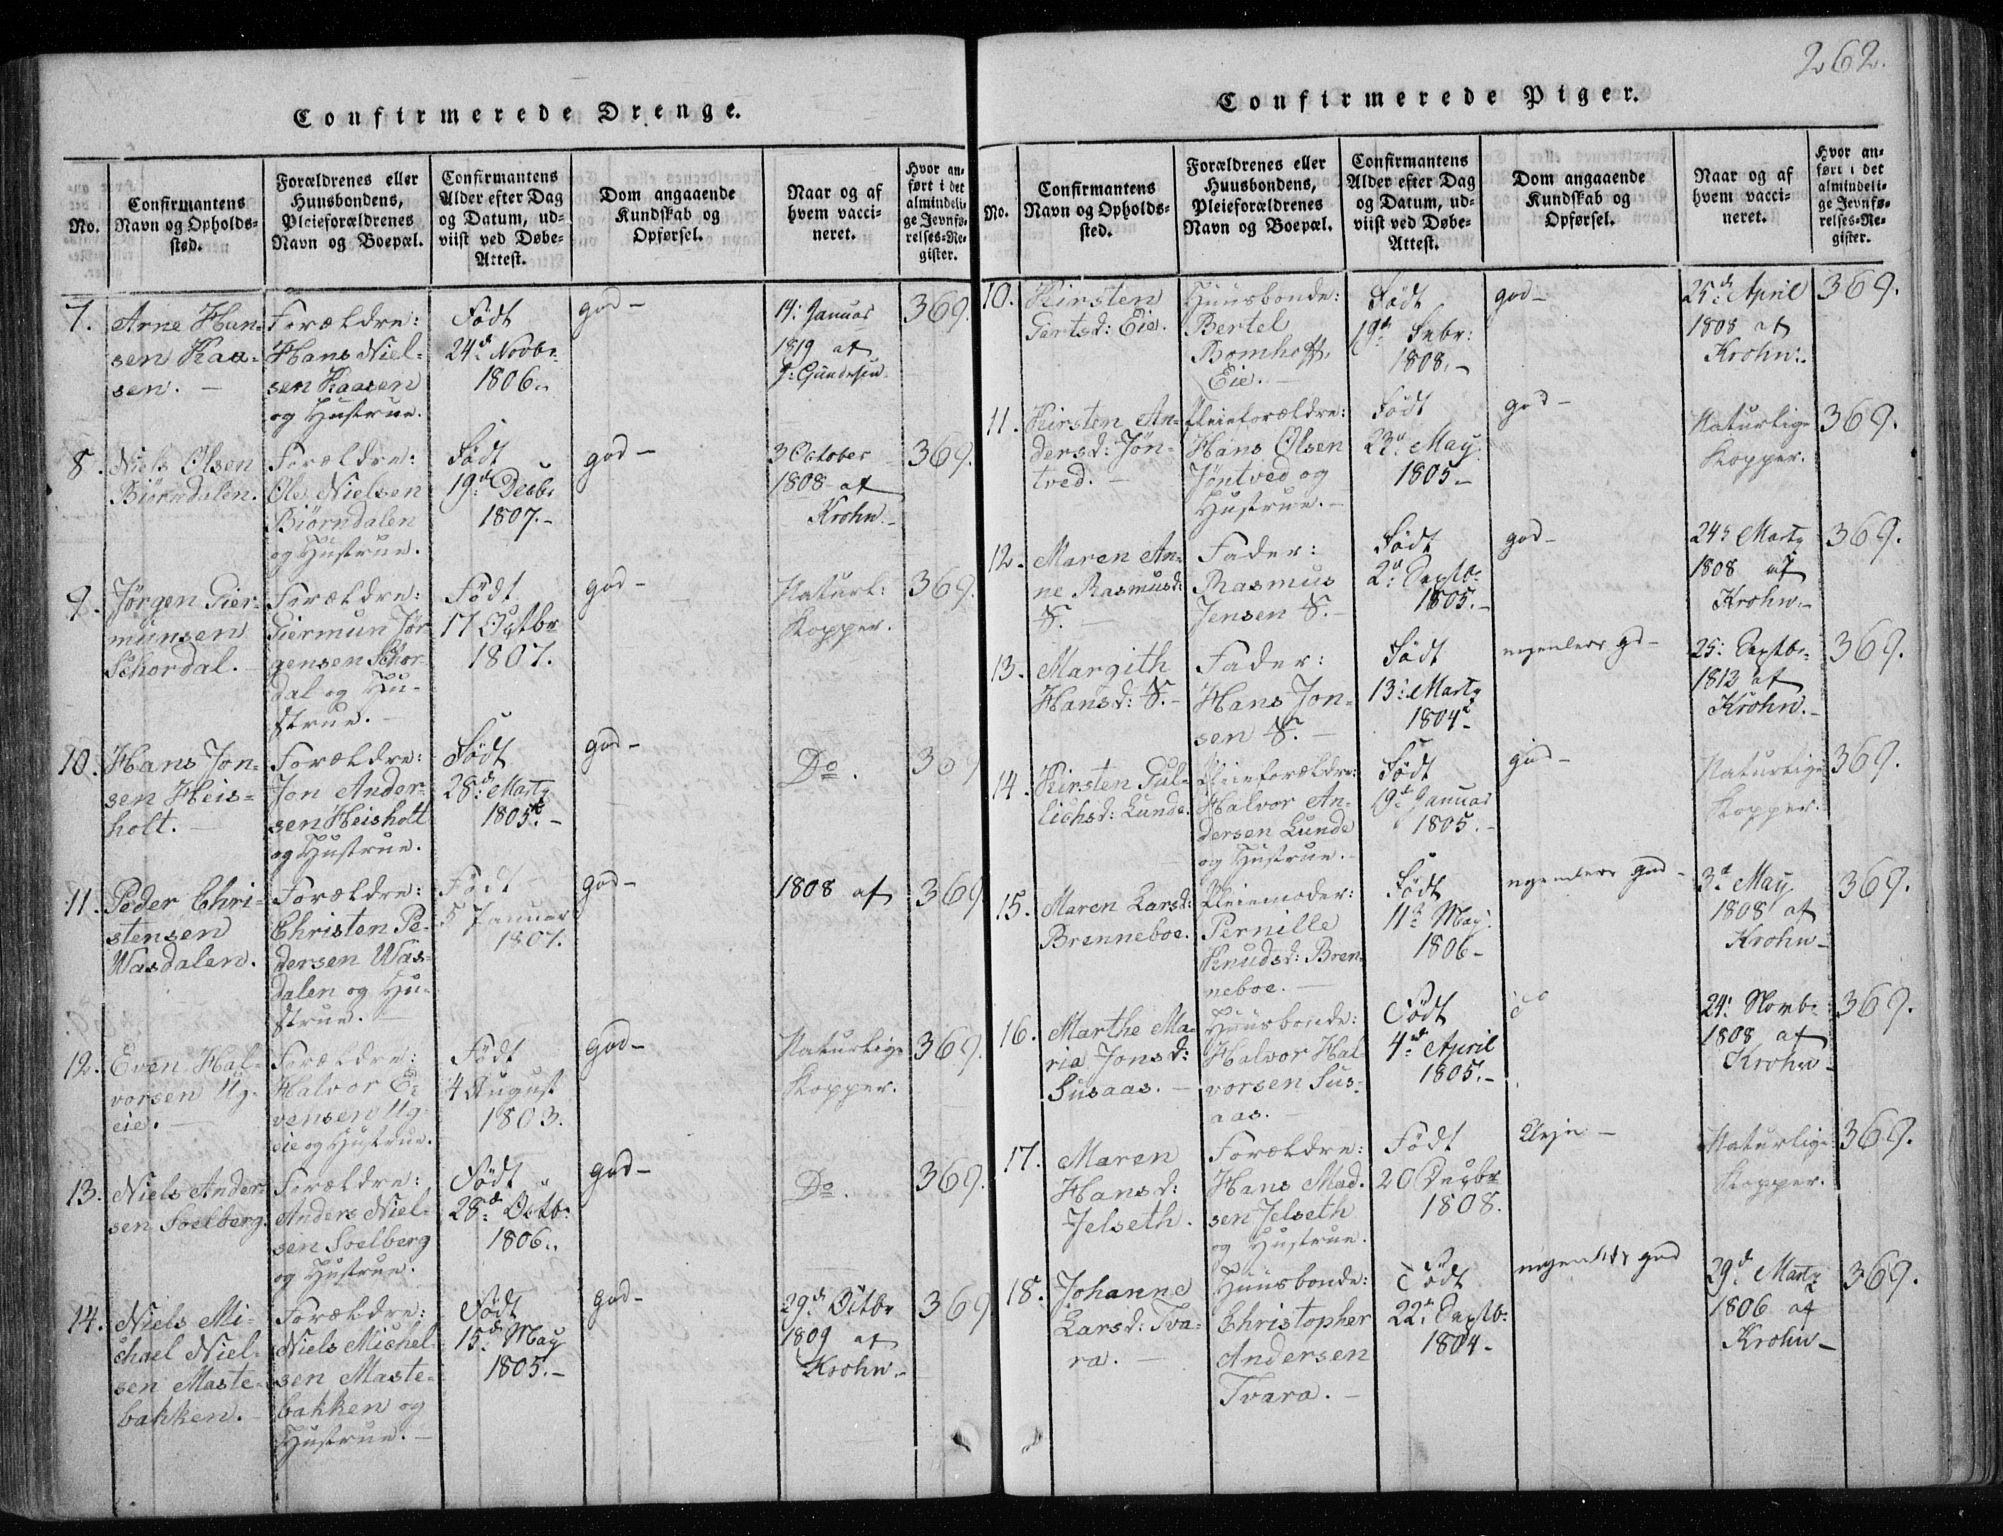 262.
Confirmerede Drenge.
No.
Confirmantens
Navn og Opholds-
sted.
Forældrenes eller
Huusbondens,
Pleieforældrenes
Navn og Boepæl.
Confirmantens
Alder efter Dag
og Datum, ud-
viist ved Døbe-
Attest.
Dom angaaende
Kundskab og
Opførsel.
Naar og af
hvem vacci-
neret.
Hvor an-
ført i det
almindeli-
ge Jevnfø-
relses-Re-
gister.
7.
Arne Han-
sen Kaa-
sen. -
Forældre:
Hans Niel-
sen Kaasen
og Hustrue.
Født
24d Novbr.
1806.
god -
14: Januar
1819 af
J: Gundesen
369.
8.
Niels Olsen
Biørndalen.
Forældre:
Ole Nielsen
Biørndalen
og Hustrue.
Født
19d Decbr
1807. -
god -
3 October
1808 af
Krohn. -
369.
9.
Jørgen Gier-
munsen
Skordal. -
Forældre:
Giermun Jør-
gensen Skor-
dal og Hu-
strue. -
Født
17 Octbr
1807.
god -
Naturl:
Kopper.
369.
10.
Hans Jon-
sen Heis-
holt. -
Forældre:
Jon Ander-
sen Heisholt
og Hustrue.
Født
28d Marty
1805. -
god -
Do.
369
11.
Peder Chri-
stensen
Wasdalen.
Forældre:
Christen Pe-
dersen Was-
dalen og Hu-
strue. -
Født
5 Januar
1807.
god -
1808 af
369
12.
Even Hal-
vorsen Ug-
eie. -
Forældre:
Halvor E-
vensen Ug-
eie og Hustrue.
Født
4 August
1803.
god -
Naturlige
Kopper.
369.
13.
Niels Ander-
sen Soelberg.
Forældre:
Anders Niel-
sen Soelberg
og Hustrue.
Født
28d Octbr.
1806.
god -
Do.
369.
14.
Niels Mi-
chael Niel-
sen Maste-
bakken. -
Forældre:
Niels Michel-
sen Maste-
bakken og
Hustrue. -
Født
15d May
1805. -
god -
29d Octbr
1809 af
Krohn. -
369
Confirmerede Piger.
No.
Confirmantens
Navn og Opholds-
sted.
Forældrenes eller
Huusbondens,
Pleieforældrenes
Navn og Boepæl.
Confirmantens
Alder efter Dag
og Datum, ud-
viist ved Døbe-
Attest.
Dom angaaende
Kundskab og
Opførsel.
Naar og af
hvem vacci-
neret.
Hvor an-
ført i det
almindeli-
ge Jevnfø-
relses-Re-
gister.
10.
Kirsten
Gartsd: Eie.
Huusbonde:
Bertel
Bomhoff,
Eie. -
Født
19d Febr:
1808. -
god -
25d April
1808 af
Krohn.
369.
11.
Kirsten An-
dersd: Jøn-
tved. -
Pleieforældre:
Hans Olsen
Jøntved og
Hustrue. -
Født
23d May
1805 -
god -
Naturlige
Kopper.
369.
12.
Maren An-
ne Rasmusd:
S. -
Fader:
Rasmus
Jensen S. -
Født
2d Septbr.
1805. -
god -
24: Marty
1808 af
Krohn. -
369.
13.
Margith
Hansd: S. -
Fader:
Hans Jon-
sen S. -
Født
13: Marty
1804 -
god -
25: Septbr.
1812 af
Krohn. -
369.
14.
Kirsten Gul-
lichsd: Lunde.
Pleieforældre:
Halvor An-
dersen Lunde
og Hustrue. -
Født
19d Januar
1805. -
god -
Naturlige
Kopper.
369.
15.
Maren Larsd:
Brenneboe.
Pleiemoder:
Pernille
Knudsd: Bren-
neboe. -
Født
11d May
1806 -
god -
3d May
1808 af
Krohn -
369.
16.
Marthe Ma-
ria Jonsd:
Susaas. -
Huusbonde:
Halvor Hal-
vorsen Sus-
aas. -
Født
4d April
1805. -
24: Novbr.
1808 af
Krohn -
369.
17.
Maren
Hansd:
Jelseth.
Forældre:
Hans Mad-
sen Jelseth
og Hustrue.
Født
20
1808.
Naturlige
Kopper.
369.
18.
Johanne
Larsd: Tva-
ra. -
Huusbonde:
Christopher
Andersen
Tvara. -
Født
22d Septbr.
1804 -
god
29d Marty
1806 af
Krohn -
369.